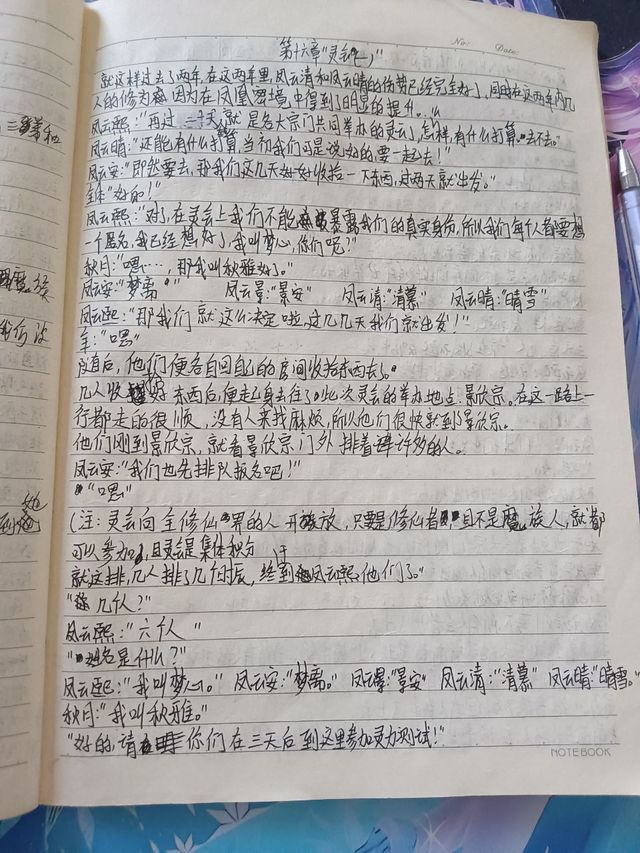 No: Date:
第十六章"灵会(七)"
就这样过去了两年，在这两年里，凤云清和凤云晴的伤势已经完全好了，同时在这两年内几
人的修为因为在凤凰密境中得到了明显的提升。
凤云熙："再过二三天就是各大宗门共同举办的灵会了，怎样，有什么打算，去不去。"
凤云晴："还能有什么打算，当初我们可是说好的，要一起去！"
凤云安："即然要去，那我们这几天好好收拾一下东西，过两天就出发。"
全体"好的！"
凤云熙："对了，在灵会上我们不能暴露我们的真实身份，所以我们每个人都要想
一个匿名，我已经想好了，我叫梦心，你们呢？"
秋月："嗯……，那我叫秋雅好了。"
凤云安："梦离" 凤云景："景安" 凤云清："清慕" 凤云晴："晴雪"
凤云熙："那我们就这么决定啦，这几天我们就出发！"
全："嗯"
随后，他们便各自回自己的房间收拾东西去了。
几人收拾好东西后，便起身去往了此次灵会的举办地点：景欣宗。在这一路上一
行都走的很顺，没有人来找麻烦，所以他们很快就到了景欣宗。
他们刚到景欣宗，就看景欣宗门外排着许多的人。
凤云安："我们也先排队报名吧！"
"嗯"
(注：灵会向全修仙界的人开放，只要是修仙者，且不是魔族人，就都
可以参加，且灵会是集体积分
就这排，几人排了几个时辰，终于到凤云熙他们了。"
"几个人？"
凤云熙："六个人 "
"姓名是什么？"
凤云熙："我叫梦心。" 凤云安："梦离。" 凤云景："景安" 凤云清："清慕" 凤云晴："晴雪。"
秋月："我叫秋雅。"
"好的，请你们在三天后到这里参加灵力测试！"
NOTEBOOK